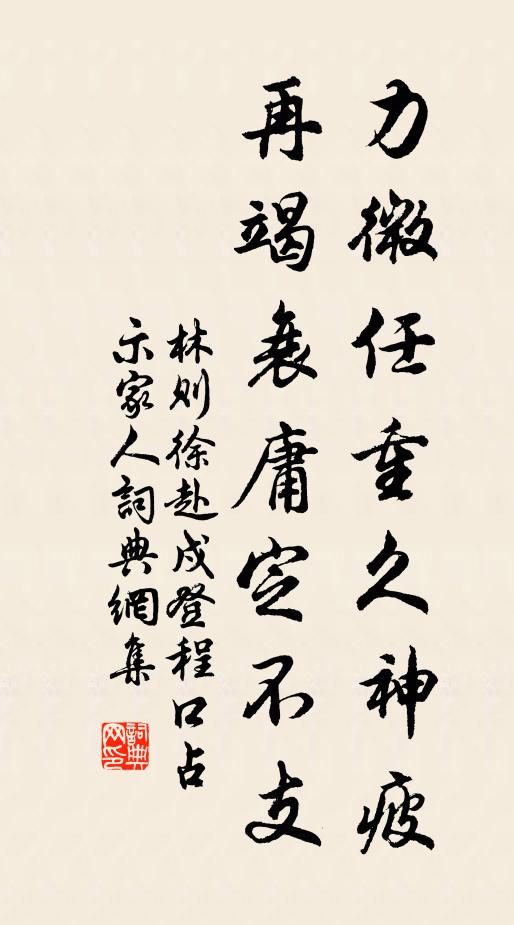 力微任重久神疲
再竭衰庸定不支
林则徐赴戍登程口占
示家人詞典網集
詞典
网印